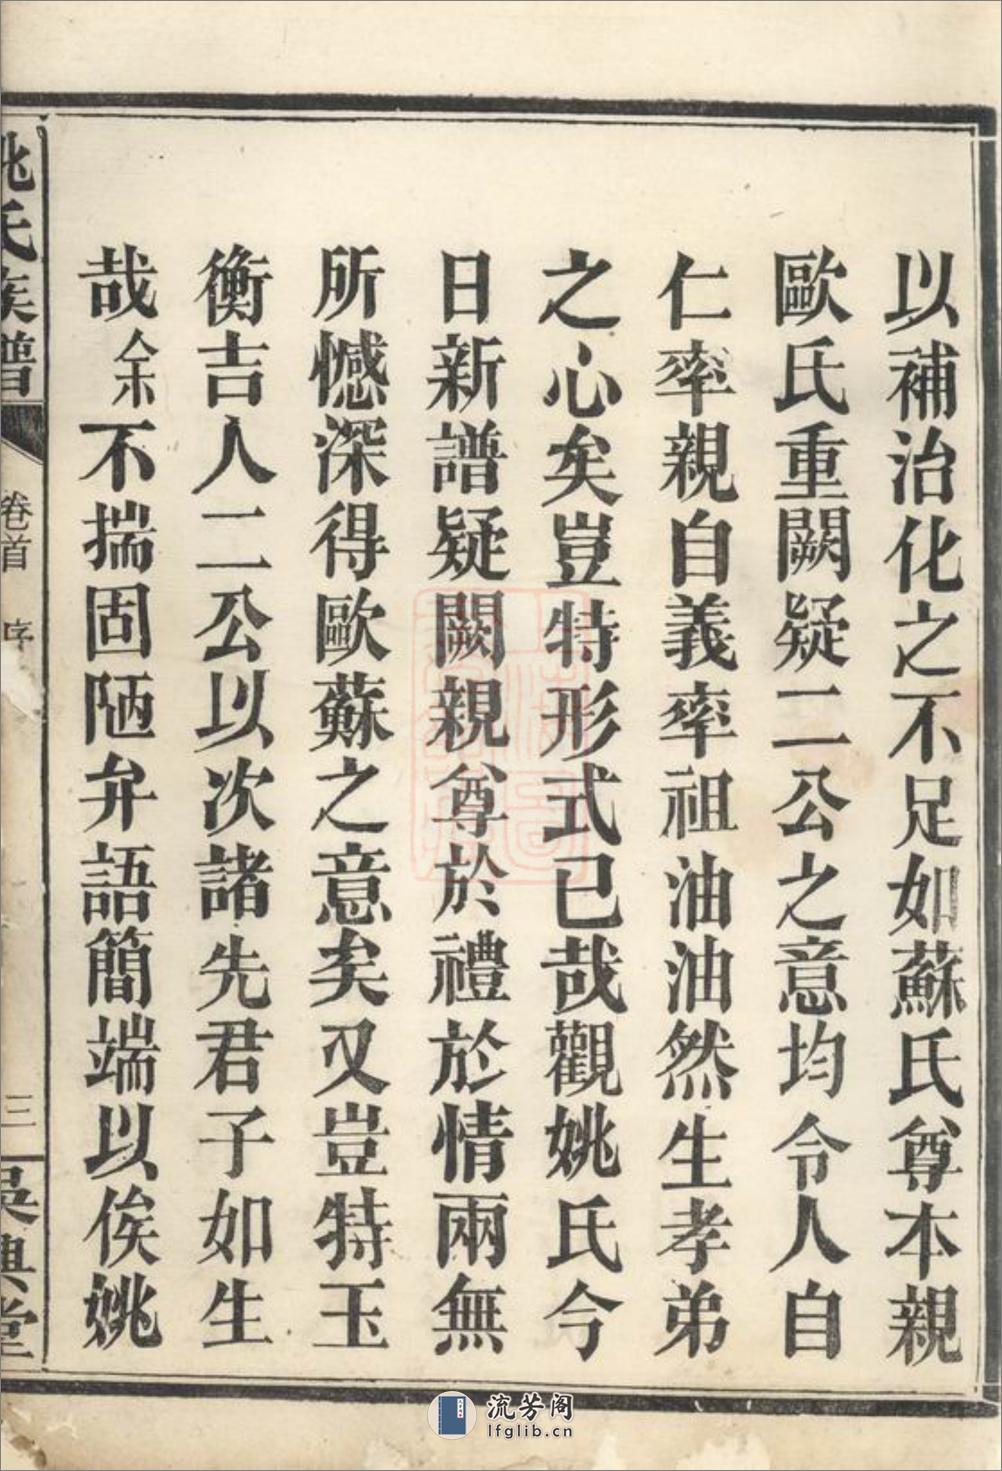 以補治化之不足如蘇氏尊本親
歐氏重闕疑二公之意均令人自
仁率親自義率祖油油然生孝弟
之心矣豈特形式已哉觀姚氏今
日新譜疑闕親尊於禮於情兩無
所憾深得歐蘇之意矣又豈特玉
衡吉人二公以次諸先君子如生
哉余不揣固陋弁語簡端以俟姚
姚氏族譜 卷首 序 三 吳興堂
流芳阁
lfglib.cn